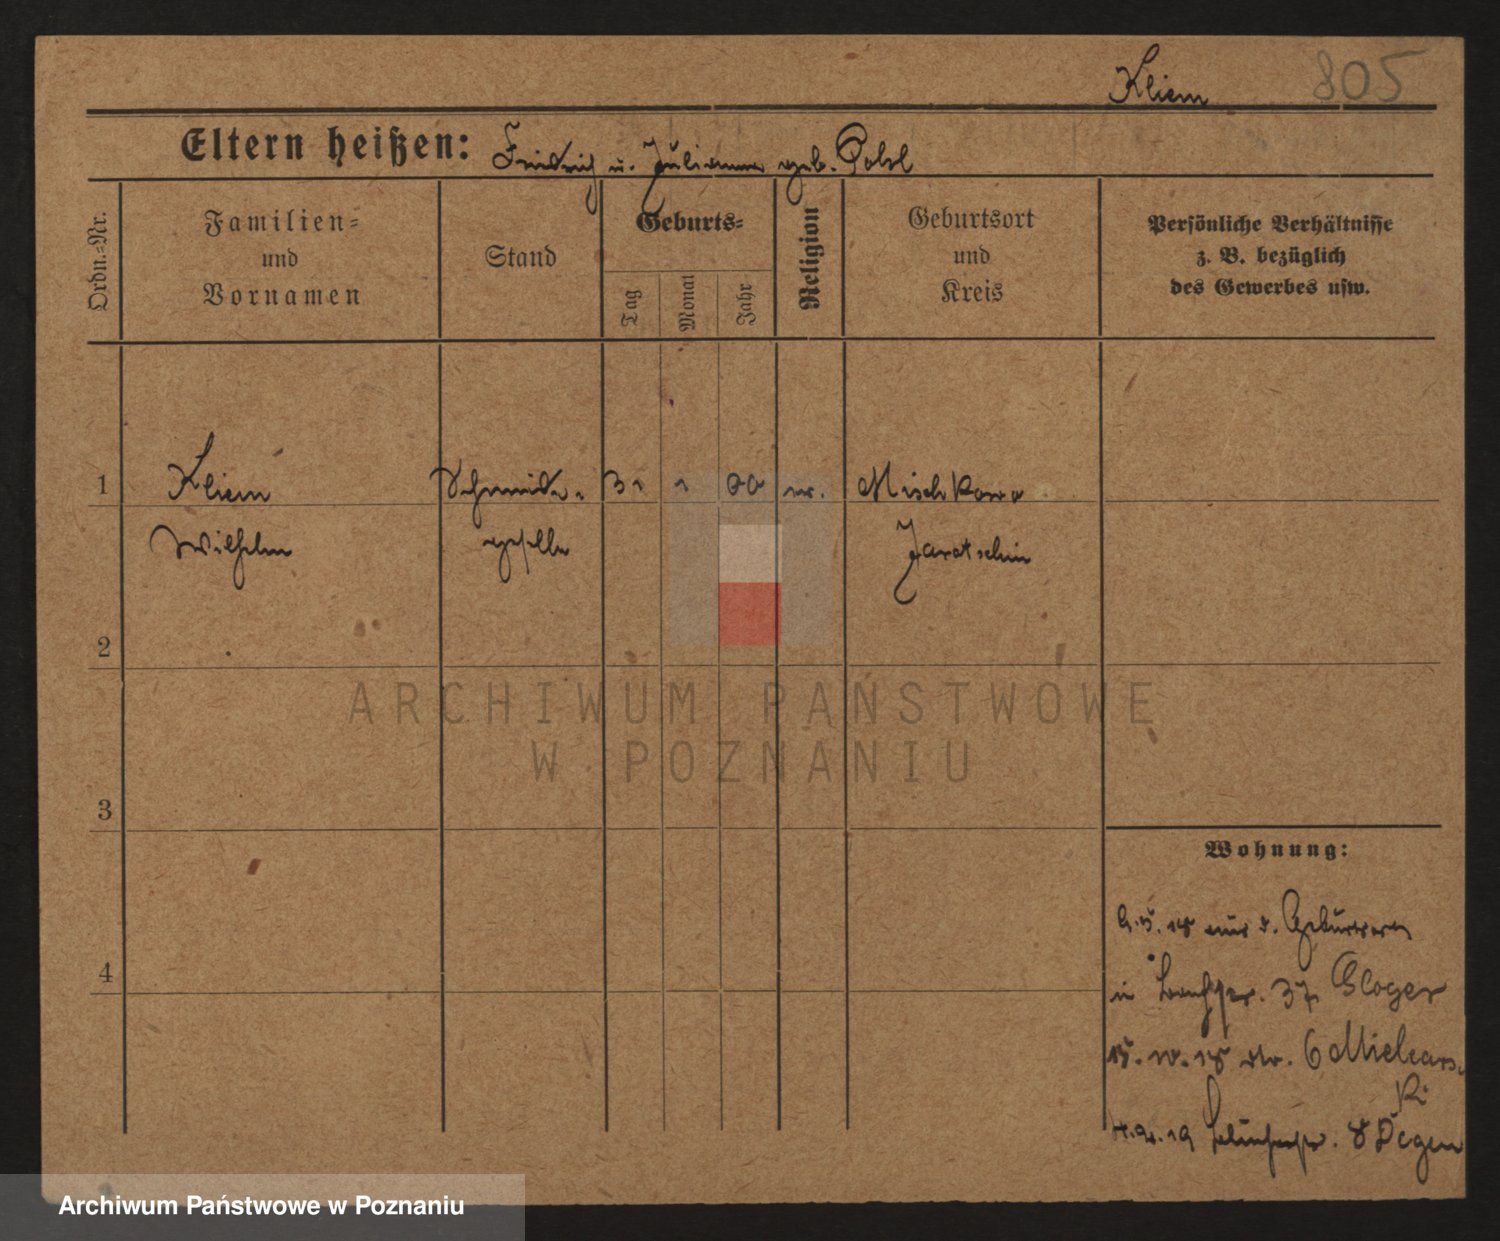 Kliem 805
Eltern heißen: Friedrich u. Julianna geb. Pohl
Ordn.-Nr.
Familien-
und
Vornamen
Stand
Geburts-
Tag
Monat
Jahr
Religion
Geburtsort
und
Kreis
Persönliche Verhältnisse
z. B. bezüglich
des Gewerbes usw.
1 Kliem Schmiede- 31 1 00 ev. Mischkowo
Wilhelm geselle Jarotschin
2
3
4
Wohnung:
18 aus d. Geburtsort
in 37 Gloger
15. 10. 18 6 Mielcars-
ki
19 8 Degen
ARCHIWUM PAŃSTWOWE
W POZNANIU
Archiwum Państwowe w Poznaniu